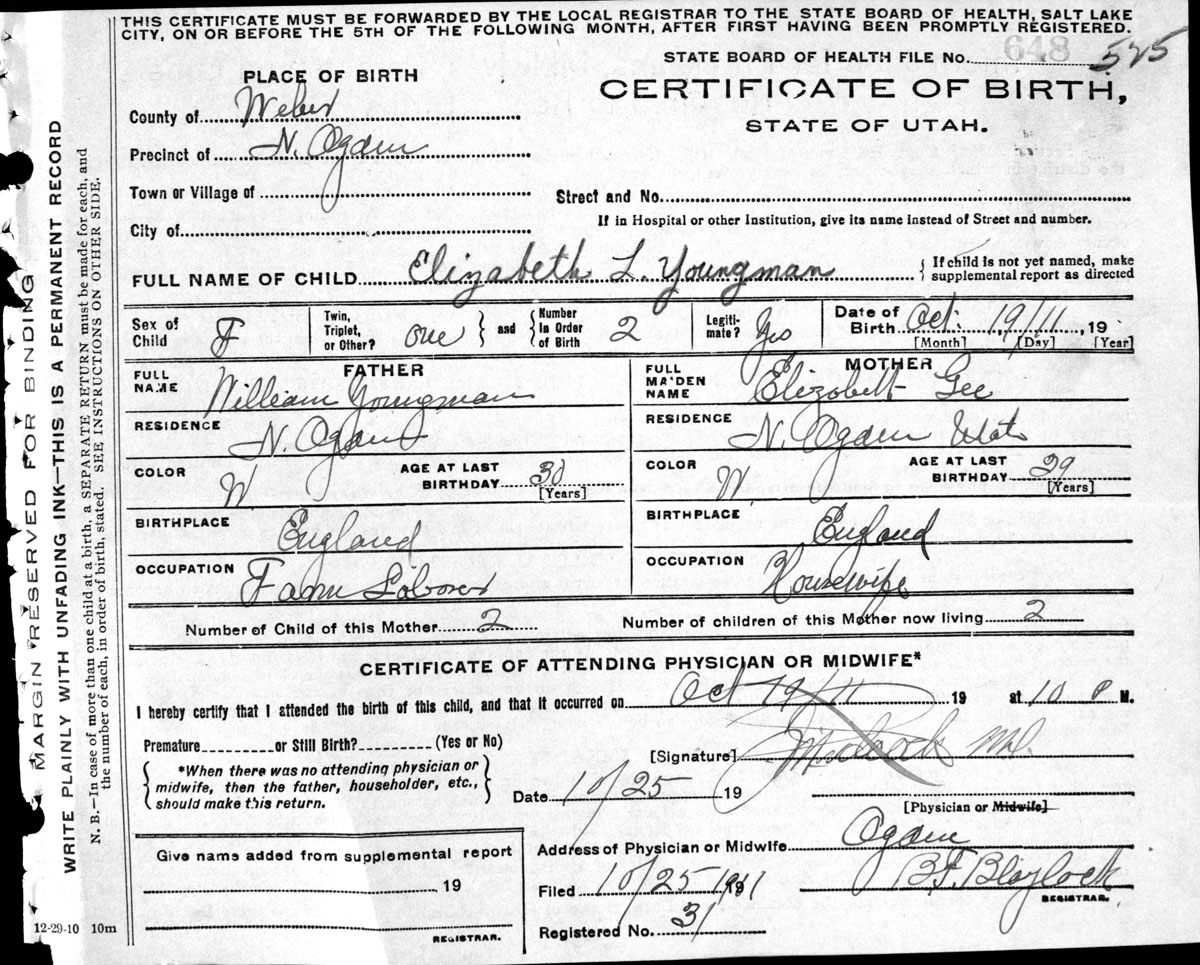 THIS CERTIFICATE MUST BE FORWARDED BY THE LOCAL REGISTRAR TO THE STATE BOARD OF HEALTH, SALT LAKE
CITY, ON OR BEFORE THE 5TH OF THE FOLLOWING MONTH, AFTER FIRST HAVING BEEN PROMPTLY REGISTERED.
STATE BOARD OF HEALTH FILE No. 648 525
PLACE OF BIRTH
CERTIFICATE OF BIRTH,
STATE OF UTAH.
County of Weber
Precinct of N. Ogden
Town or Village of
Street and No.
If in Hospital or other Institution, give its name instead of Street and number.
City of
FULL NAME OF CHILD Elizabeth L. Youngman { If child is not yet named, make
supplemental report as directed
Sex of Child F
Twin, Triplet, or Other? one } and { Number in Order of Birth 2
Legitimate? Yes
Date of Birth Oct. 19/11, 19
[Month] [Day] [Year]
FATHER
FULL NAME William Youngman
RESIDENCE N. Ogden
COLOR W AGE AT LAST BIRTHDAY 30 [Years]
BIRTHPLACE England
OCCUPATION Farm Laborer
MOTHER
FULL MAIDEN NAME Elizabeth Gee
RESIDENCE N. Ogden Utah
COLOR W AGE AT LAST BIRTHDAY 29 [Years]
BIRTHPLACE England
OCCUPATION Housewife
Number of Child of this Mother 2 Number of children of this Mother now living 2
CERTIFICATE OF ATTENDING PHYSICIAN OR MIDWIFE*
I hereby certify that I attended the birth of this child, and that it occurred on Oct 19/11 19 at 10 P M.
Premature or Still Birth? (Yes or No)
[Signature] MD.
{ *When there was no attending physician or
midwife, then the father, householder, etc.,
should make this return. }
Date 10/25 19
[Physician or Midwife]
Give name added from supplemental report
19
REGISTRAR.
Address of Physician or Midwife Ogden
Filed 10/25 1911 B.F. Blaylock
REGISTRAR.
Registered No. 31
12-29-10 10m
MARGIN RESERVED FOR BINDING
WRITE PLAINLY WITH UNFADING INK—THIS IS A PERMANENT RECORD
N. B.—In case of more than one child at a birth, a SEPARATE RETURN must be made for each, and
the number of each, in order of birth, stated. SEE INSTRUCTIONS ON OTHER SIDE.